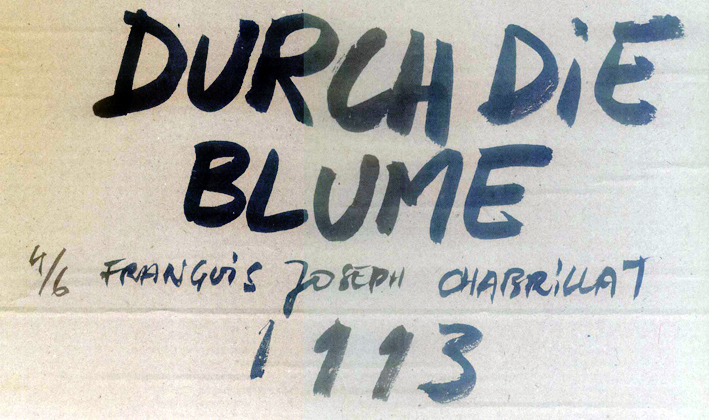 DURCH DIE
BLUME
4/6 FRANÇOIS JOSEPH CHABRILLAT
1993